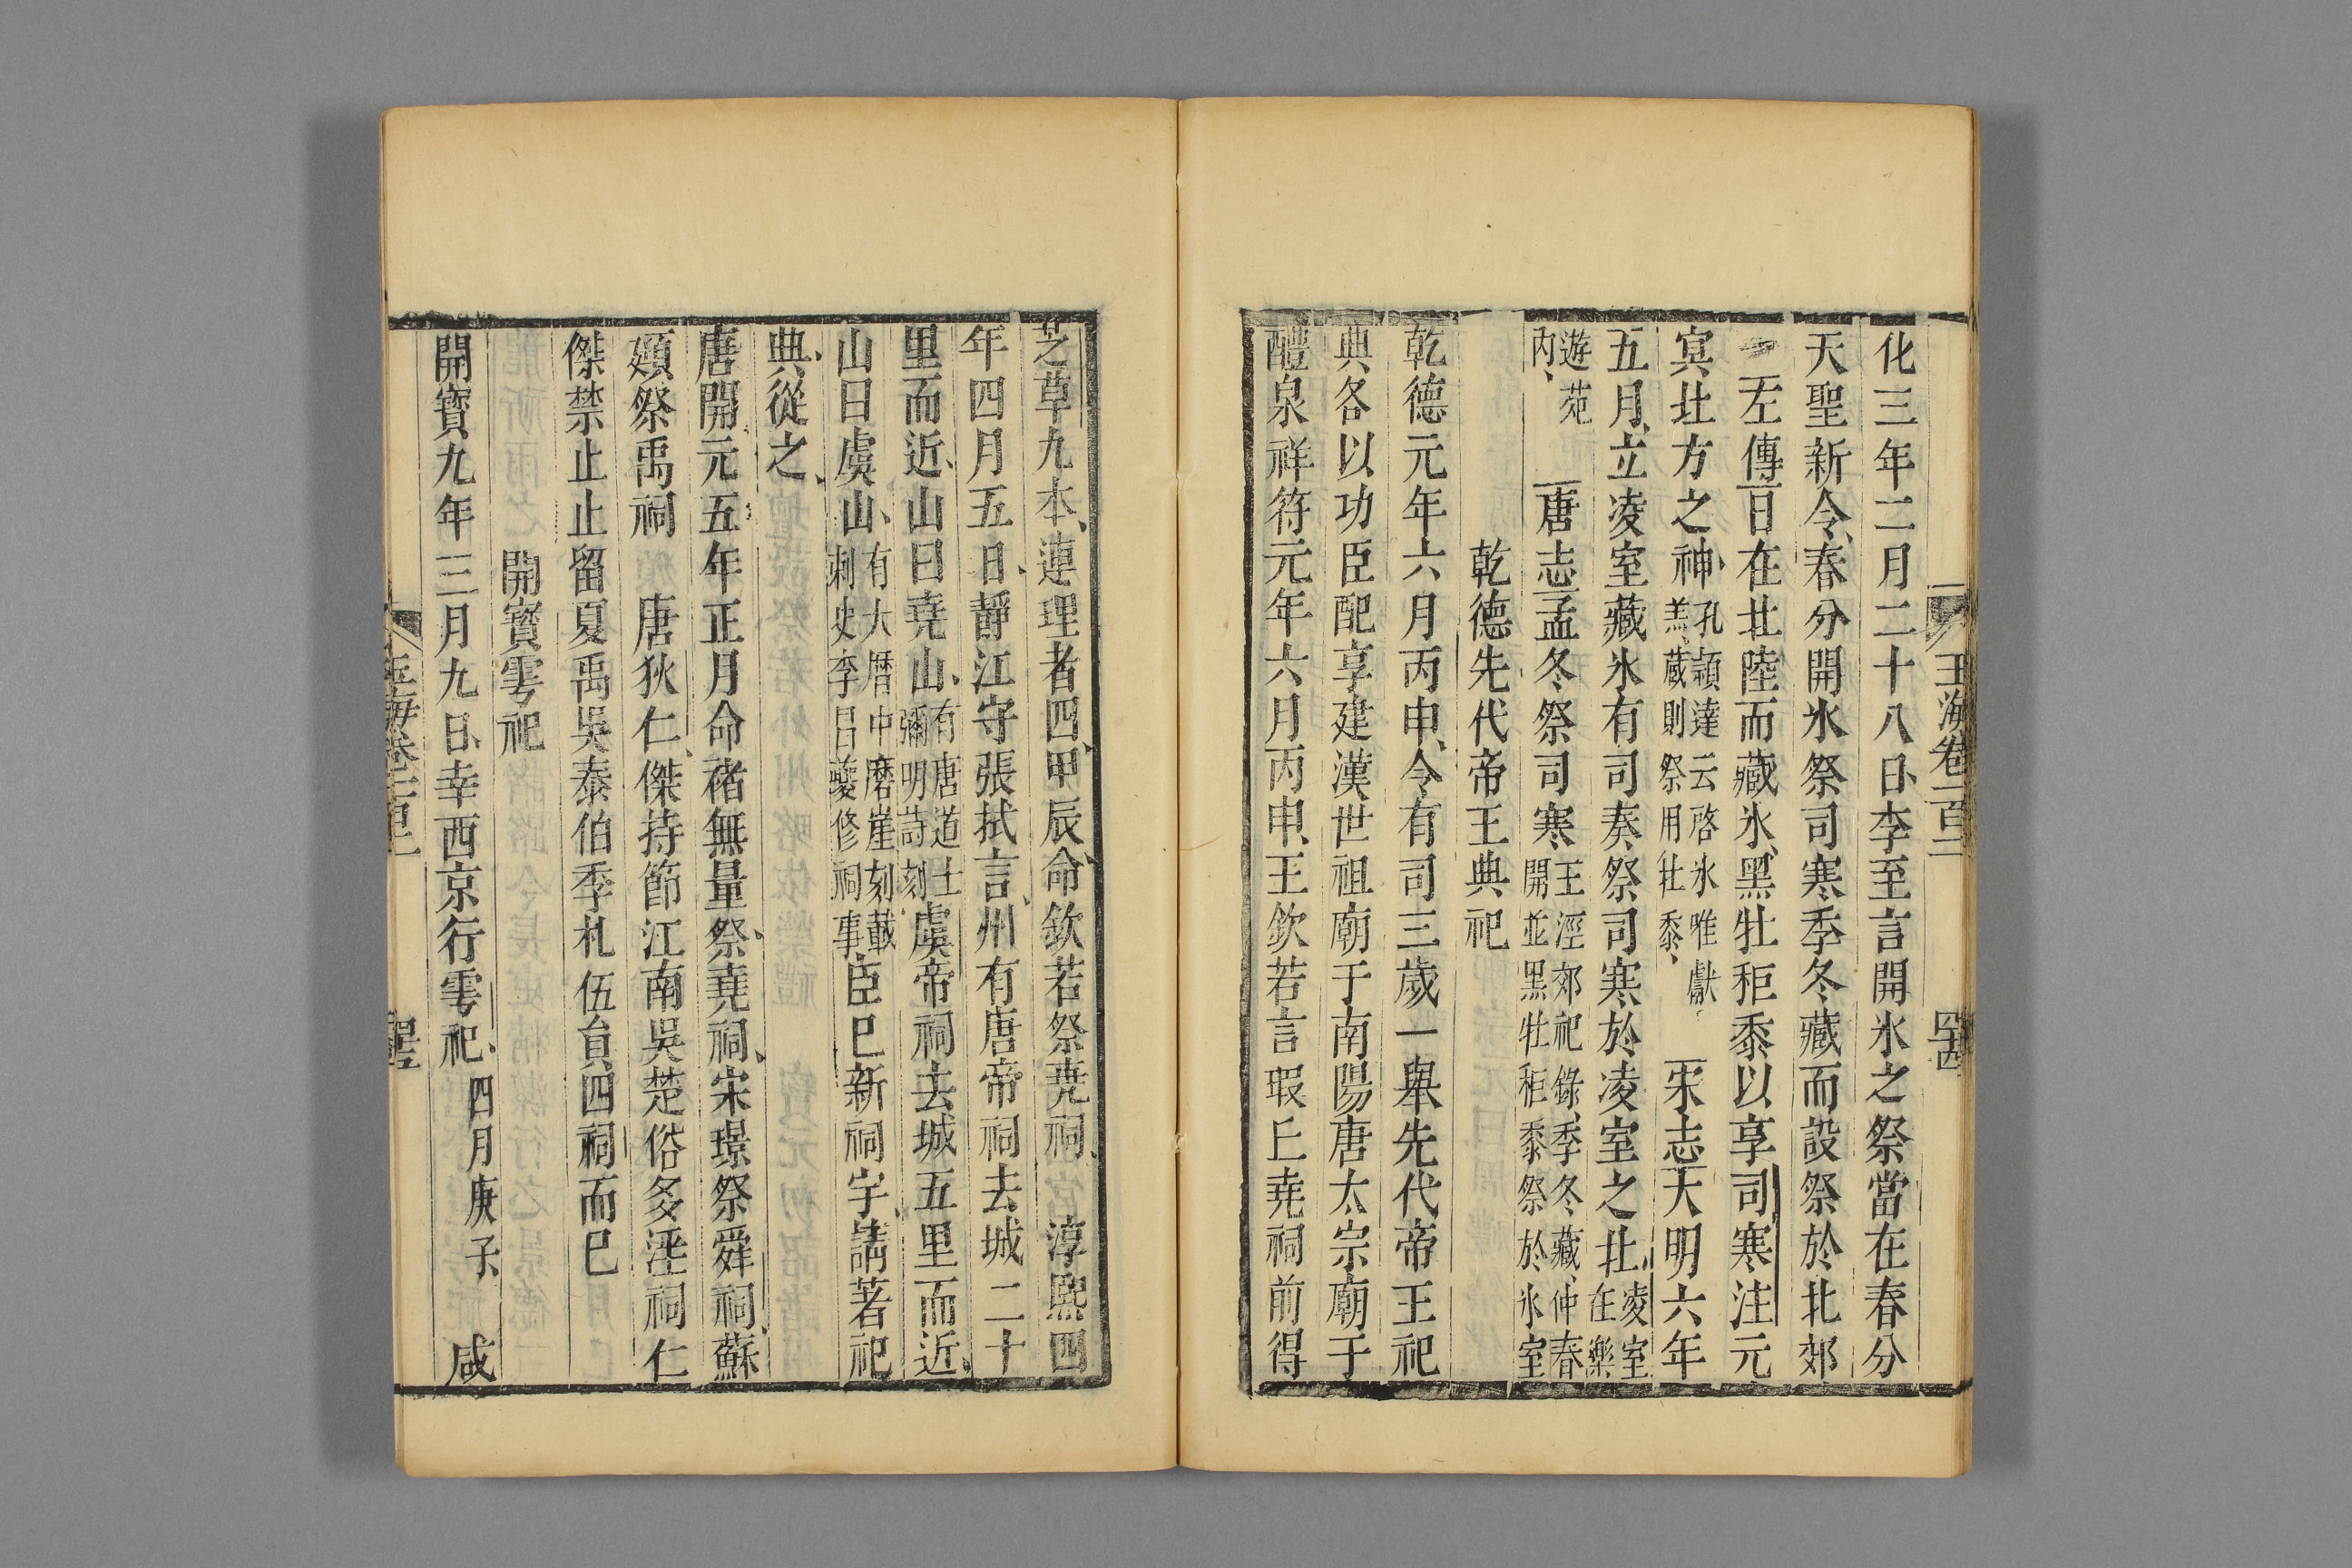 玉海卷一百二
四十四
化三年二月二十八日李至言開氷之祭當在春分
天聖新令春分開氷祭司寒季冬藏而設祭於北郊
左傳日在北陸而藏氷黑牡秬黍以享司寒注元
冥北方之神孔頴達云啓氷唯獻羔藏則祭用牡黍 宋志天明六年
五月立凌室藏氷有司奏祭司寒於凌室之北凌室在樂
遊苑内 唐志孟冬祭司寒王涇郊祀錄季冬藏仲春開並黑牡秬黍祭於氷室
乾德先代帝王典祀
乾德元年六月丙申令有司三歲一舉先代帝王祀
典各以功臣配享建漢世祖廟于南陽唐太宗廟于
醴泉祥符元年六月丙申王欽若言瑕丘堯祠前得
芝草九本連理者四甲辰命欽若祭堯祠 淳熙四
年四月五日靜江守張栻言州有唐帝祠去城二十
里而近山曰堯山有唐道士彌明詩刻虞帝祠去城五里而近
山曰虞山有大曆中磨崖刻載刺史李昌夔修祠事臣已新祠宇請著祀
典從之
唐開元五年正月命禇無量祭堯祠宋璟祭舜祠蘇
頲祭禹祠 唐狄仁傑持節江南吳楚俗多淫祠仁
傑禁止止留夏禹吳泰伯季札伍員四祠而已
開寶雩祀
開寶九年三月九日幸西京行雩祀四月庚子 咸
玉海卷一百二